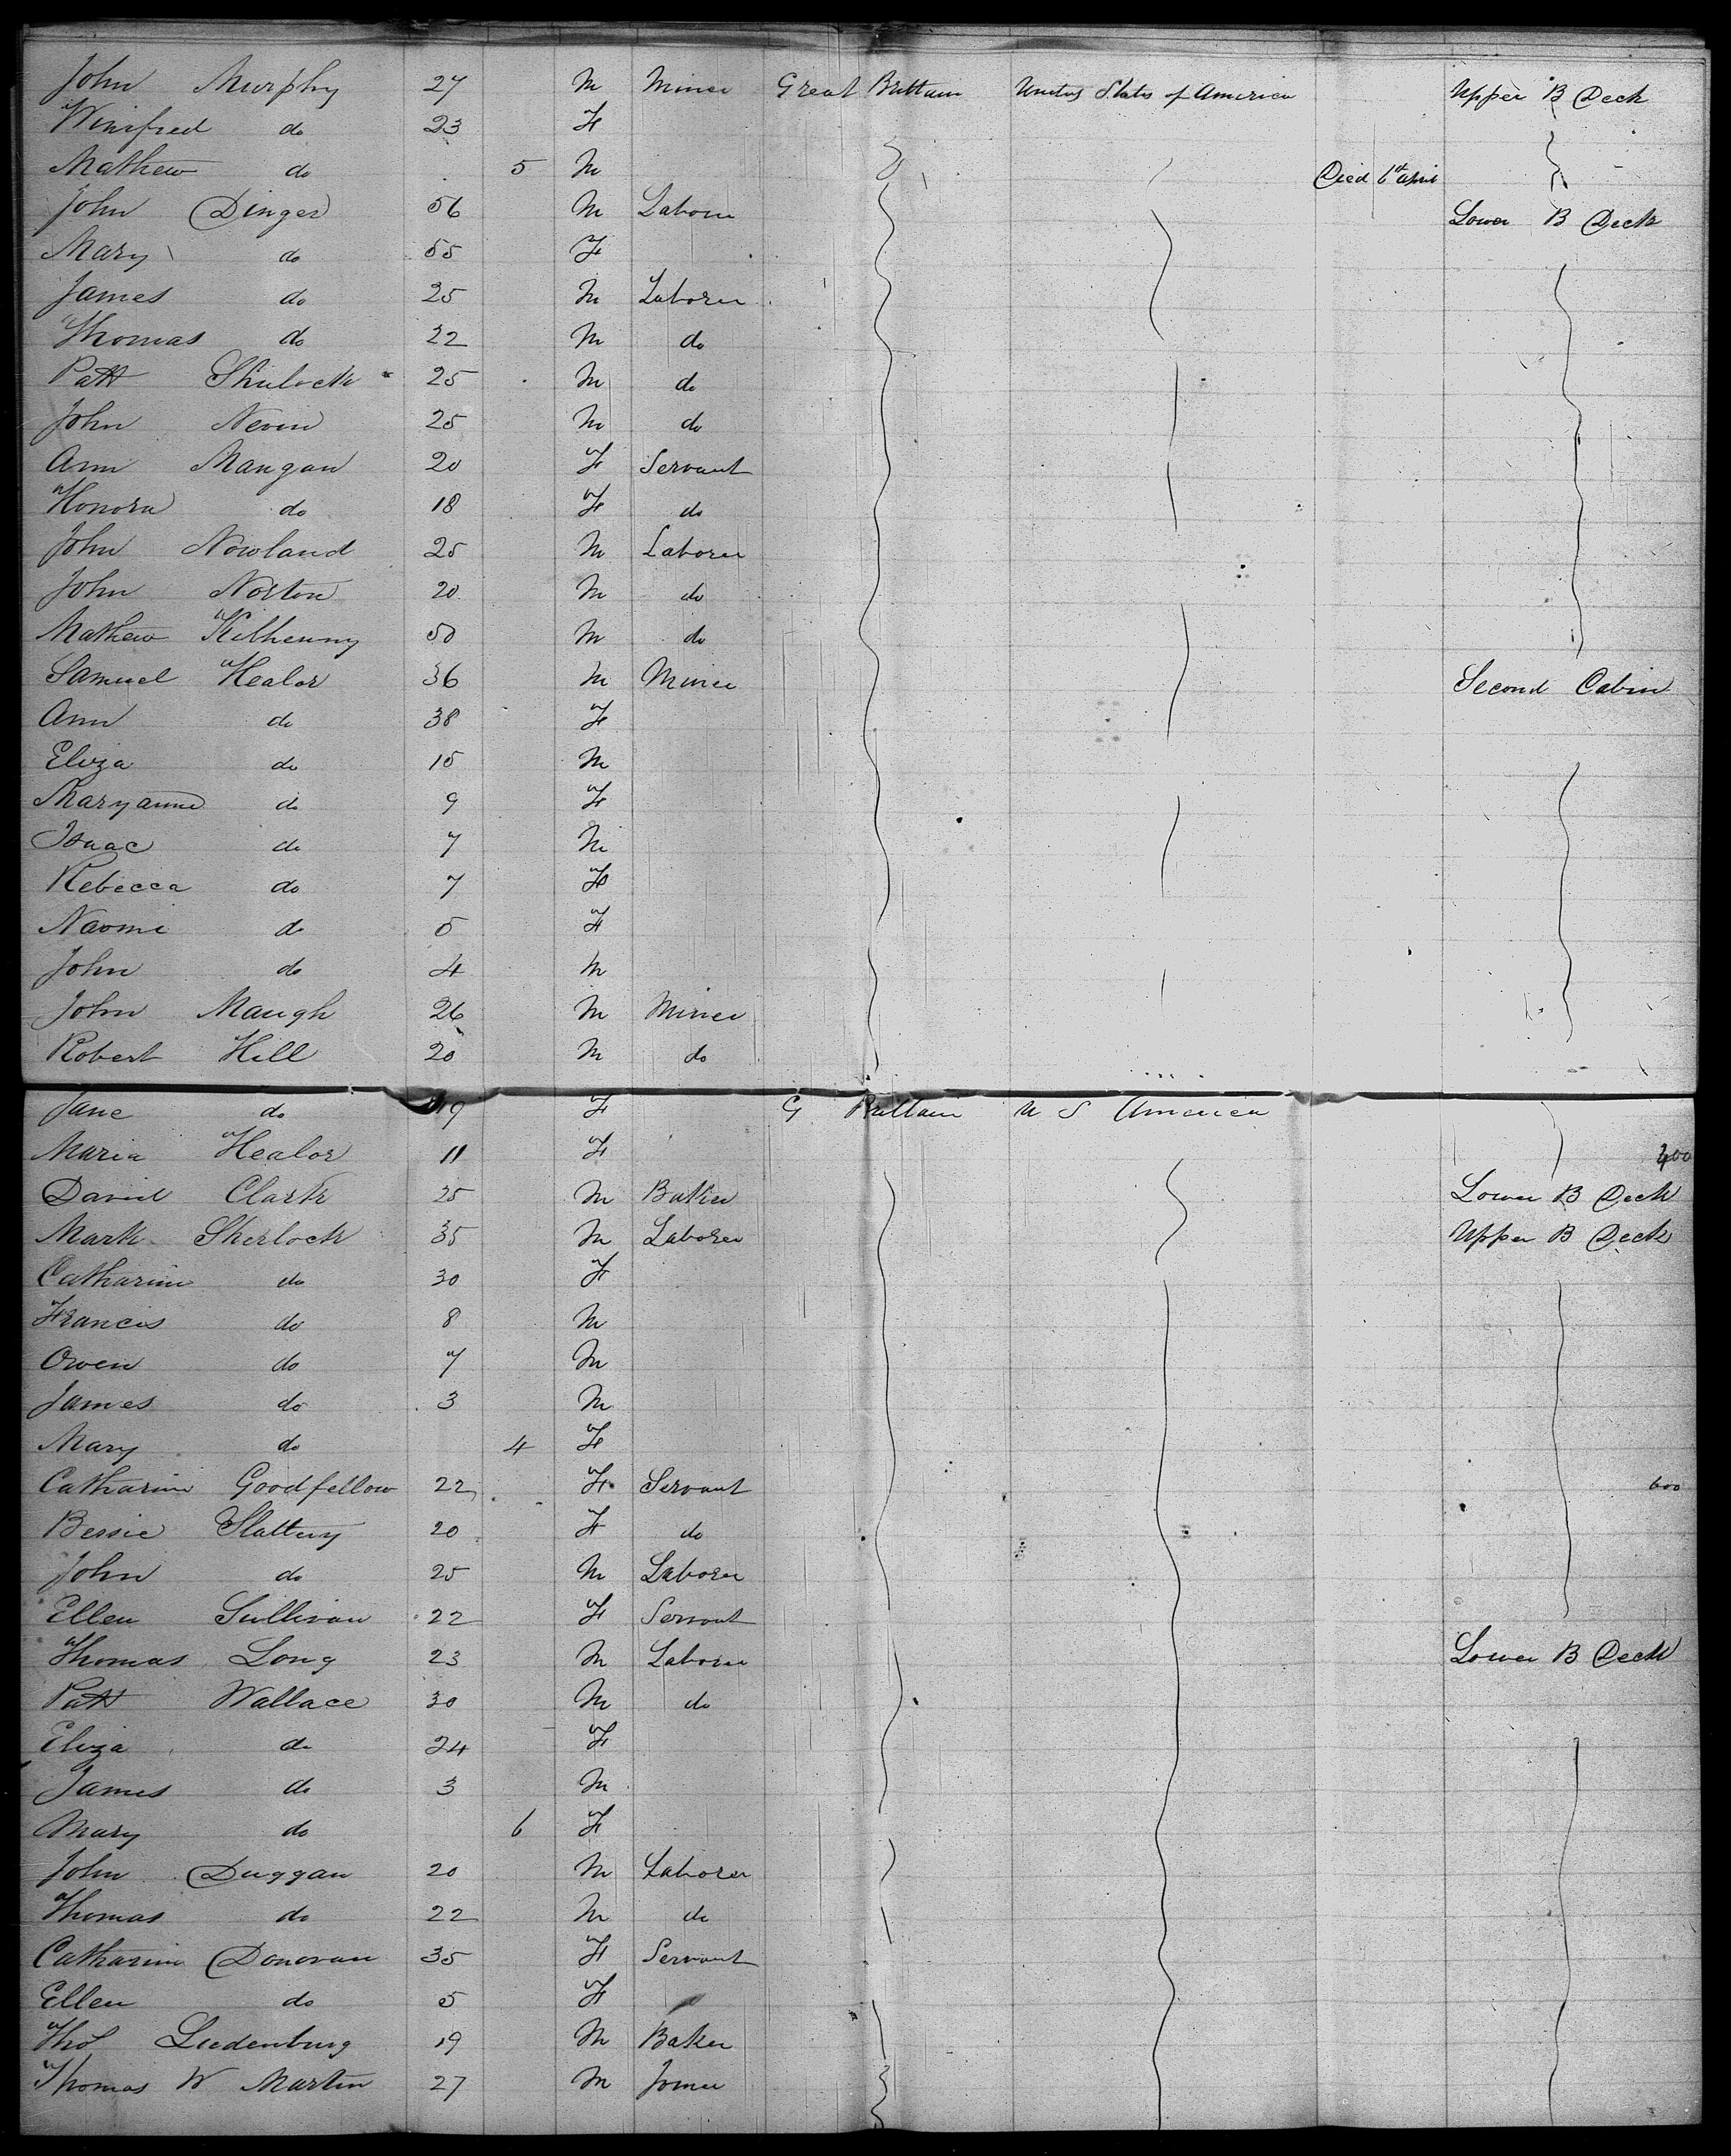 John Murphy 27 M Miner Great Brittain United States of America Upper B Deck
Winifred do 23 F
Mathew do 5 M Died 6th April
John Dinger 56 M Laborer Lower B Deck
Mary do 55 F
James do 25 M Laborer
Thomas do 22 M do
Patt 25 M do
John Nevin 25 M do
Ann Mangan 20 F Servant
Honora do 18 F do
John Nowland 25 M Laborer
John Norton 20 M do
Mathew Kilkenny 50 M do
Samuel Healor 36 M Miner Second Cabin
Ann do 38 F
Eliza do 15 M
Maryanne do 9 F
Isaac do 7 M
Rebecca do 7 F
Naomi do 5 F
John do 4 M
John Maugh 26 M Miner
Robert Hill 20 M do
Jane do 19 F G Brittain U S America
Maria Healor 11 F 400
David Clark 25 M Baker Lower B Deck
Mark Sherlock 35 M Laborer Upper B Deck
Catharine do 30 F
Francis do 8 M
Owen do 7 M
James do 3 M
Mary do 4 F
Catharine Goodfellow 22 F Servant 600
Bessie Slattery 20 F do
John do 25 M Laborer
Ellen Sullivan 22 F Servant
Thomas Long 23 M Laborer Lower B Deck
Patt Wallace 30 M do
Eliza do 24 F
James do 3 M
Mary do 6 F
John Duggan 20 M Laborer
Thomas do 22 M do
Catharine Donovan 35 F Servant
Ellen do 5 F
Thos Ludenburg 19 M Baker
Thomas W Martin 27 M Joiner